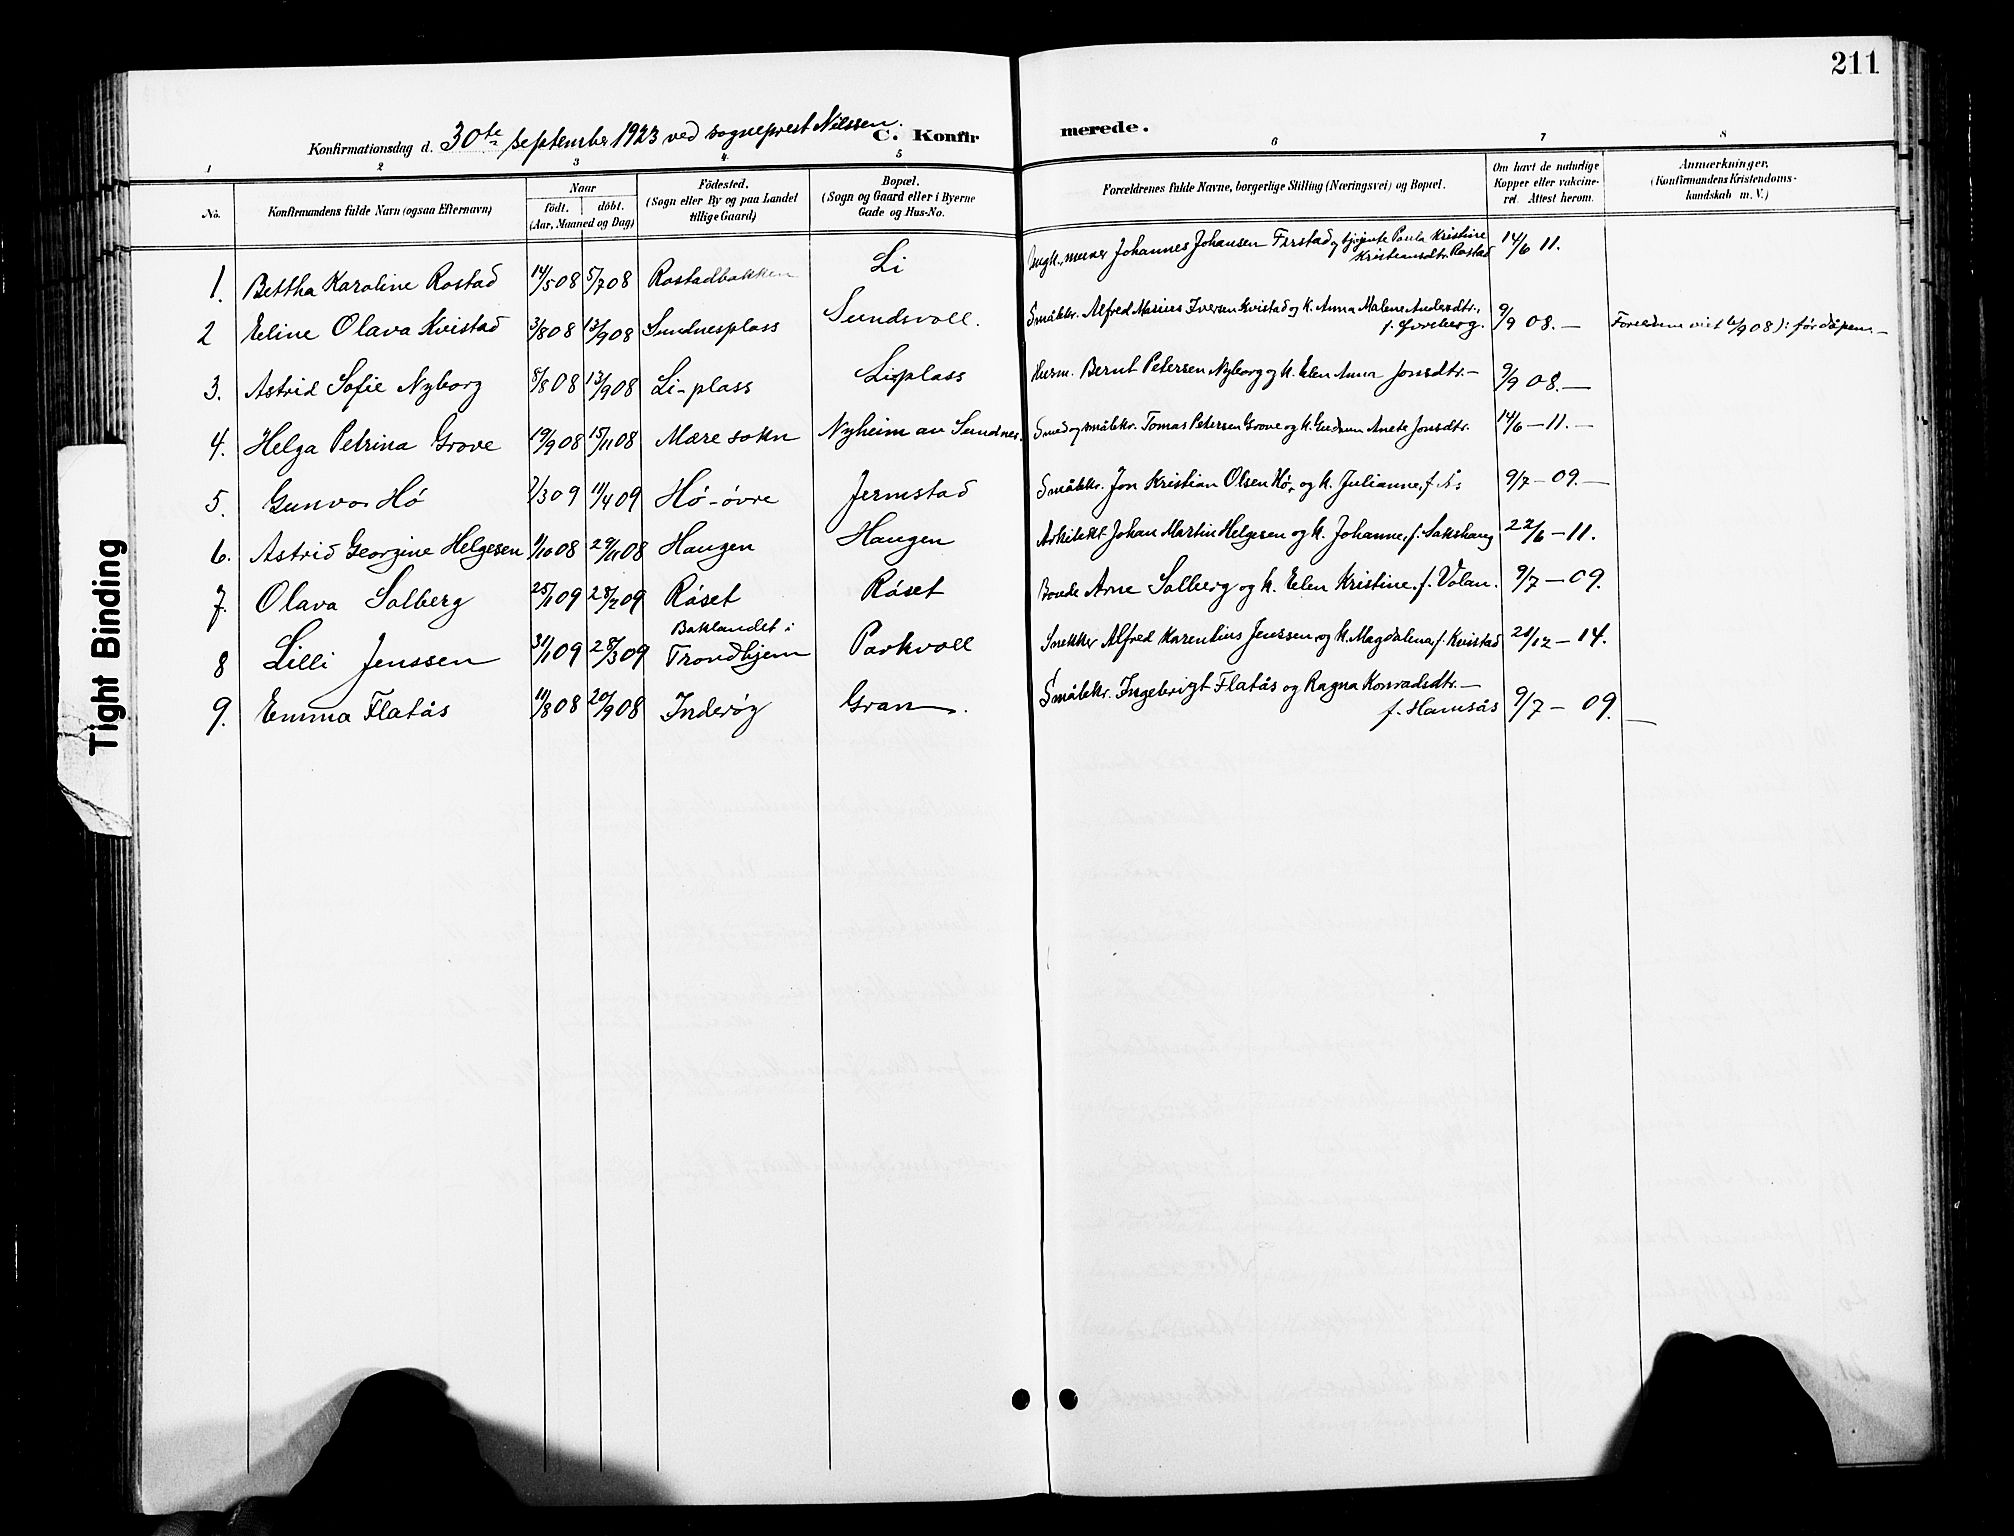 211
Konfirmationsdag d. 30te september 1923 ved sogneprest Nilssen. C. Konfir merede.
1 2 3 4. 5 6 7 8
No. Konfirmandens fulde Navn (ogsaa Efternavn) Naar födt. döbt. (Aar, Maaned og Dag) Födested. (Sogn eller By og paa Landet tillige Gaard) Bopæl. (Sogn og Gaard eller i Byerne Gade og Hus-No. Forældrenes fulde Navne, borgerlige Stilling (Næringsvei) og Bopæl. Om havt de naturlige Kopper eller vakcineret. Attest herom. Anmærkninger, (Konfirmandens Kristendomskundskab m. V.)
1. Bettha Karoline Rostad 14/5 08 5/7 08 Rostadbakken Li Ungk., murer Johannes Johansen Ferstad og tjenjente Paula Kristine Kristiansdtr. Rostad 14/6 11.
2 Eline Olava Kvistad 3/8 08 13/9 08 Sundnesplass Sundsvoll. Småbkr. Alfred Marius Iversen Kvistad og k. Anna Malene Andersdtr., 9/9 08. — Foreldrene viet 6/9 08 ): før dåpen. —
3. Astrid Sofie Nyborg 8/8 08 13/9 08 Li-plass Lisplass Husm. Bernt Petersen Nyborg og k. Elen Anna Jonsdtr. — 9/9 08. —
4. Helga Petrina Grove 19/9 08 15/11 08 Mære sokn Nyheim av Sundnes. Smed og småbkr. Tomas Petersen Grove og k. Gudrun Anete Jonsdtr. 14/6 — 11. —
5. Gunvor Hó 7/3 09 11/4 09 Hó-óvre Jermstad Småbkr. Jon Kristian Olsen Hó, og k. Julianne, f. Ås 9/7 — 09. —
6. Astrid Georgine Helgesen 9/10 08 29/11 08 Haugen Haugen Arkitekt Johan Martin Helgesen og k. Johanne, f. Sakshaug 22/6 — 11.
7. Olava Solberg 25/1 09 28/2 09 Róset Róset Bonde Arne Solberg og k. Elen Kristine, f. Volan. 9/7 — 09.
8 Lilli Jenssen 31/1 09 28/3 09 Baklandet i Trondhjem Parkvoll Snekker Alfred Karentius Jenssen, og k. Magdalena, f. Kvistad 28/12 — 14.
9. Emma Flatås 11/8 08 20/9 08 Inderøy Gran. Småbkr. Ingebrigt Flatås og Ragna Konradsdtr. — f. Hamsås 9/7 — 09. —
Tight Binding